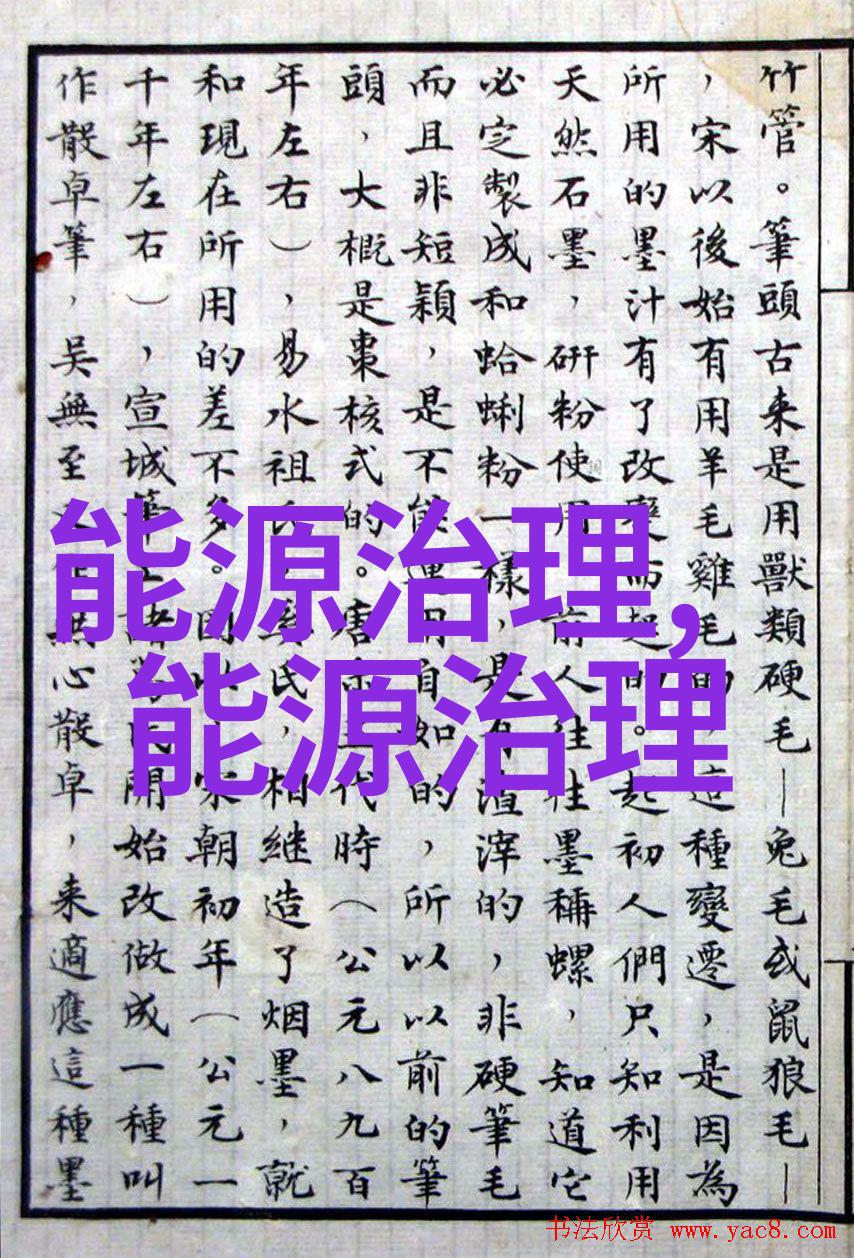 竹管。筆頭古来是用獸類硬毛—兔毛或鼠狼毛—
，宋以後始有用羊毛雞毛的，這種變遷，是因為
所用的墨汁有了改變而起的。起初人們只知利用
天然石墨，研粉使用，前人往往墨稱螺，知道它
必定製成和蛤蜊粉一樣，是有渣滓的，非硬筆毛
而且非短穎，是不能運用自如的，所以以前的筆
頭，大概是棗核式的。唐代時（公元八九百
年左右），易水祖氏奚氏，相継造了烟墨，就
和現在所用的差不多。因以宋朝初年（公元一
千年左右），宣城筆諸氏開始改做成一種叫
作散卓筆，吳無至無心散卓，来適應這種墨
能源治理，
能源治理
书法欣赏 www.yac8.com